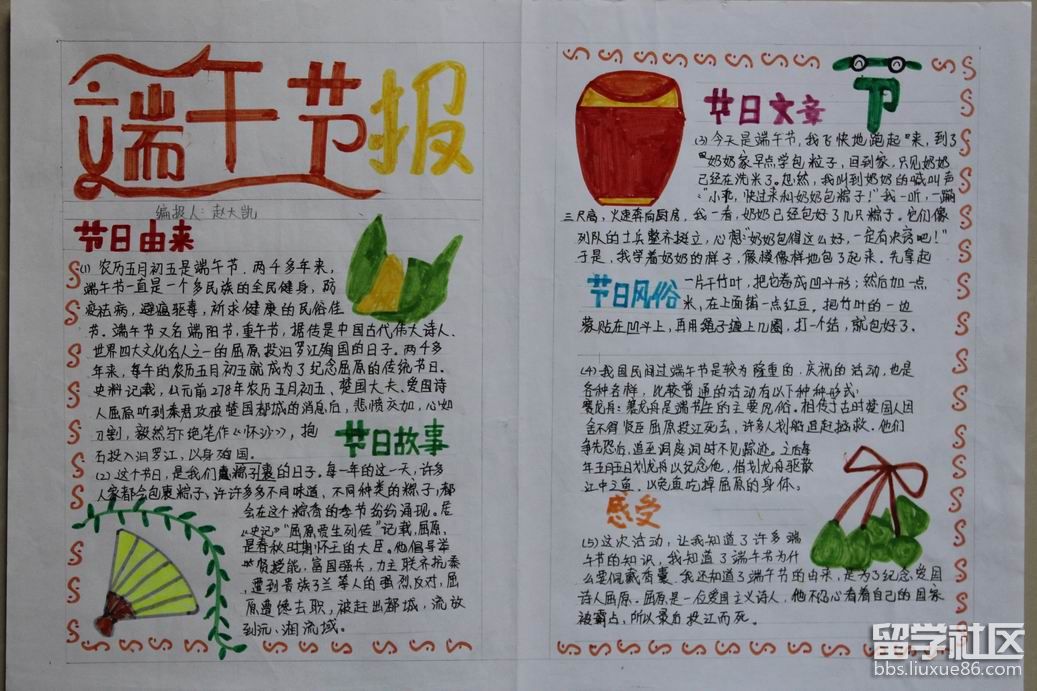 端午节报
编报人：赵大凯
节日由来
(1) 农历五月初五是端午节，两千多年来，
端午节一直是一个多民族的全民健身，防
疫祛病，避瘟驱毒，祈求健康的民俗佳
节。端午节又名端阳节，重午节，据传是中国古代伟大诗人、
世界四大文化名人之一的屈原投汨罗江殉国的日子。两千多
年来，每年的农历五月初五就成为了纪念屈原的传统节日。
史料记载，公元前278年农历五月初五、楚国大夫、爱国诗
人屈原听到秦君攻破楚国都城的消息后，悲愤交加，心如
刀割，毅然写下绝笔作《怀沙》，抱
石投入汨罗江，以身殉国。
节日故事
(2) 这个节日，是我们裹粽子的日子。每一年的这一天，许多
人家都会包裹粽子，许许多多不同味道，不同种类的粽子，都
会在这个粽香的季节纷纷涌现。居
《史记》“屈原贾生列传”记载，屈原，
是春秋时期怀王的大臣。他倡导举
贤授能，富国强兵，力主联齐抗秦，
遭到贵族子兰等人的强烈反对，屈
原遭馋去职，被赶出都城，流放
到沅、湘流域。
节
节日文章
(3) 今天是端午节，我飞快地跑起来，到了
奶奶家早点学包粒子，回到家，只见奶奶
已经在洗米了。忽然，我叫到奶奶的喊叫声
：“小乖，快过来和奶奶包粽子！”我一听，一蹦
三尺高，火速奔向厨房，我一看，奶奶已经包好了几只粽子。它们像
列队的士兵整齐挺立，心想：“奶奶包得这么好，一定有诀窍吧！”
于是，我学着奶奶的样子，像模像样地包了起来，先拿起
一片干竹叶，把它卷成凹斗形；然后加一点
米，在上面铺一点红豆。把竹叶的一边
紧贴在凹斗上，再用绳子缠上几圈，打一个结，就包好了。
节日风俗
(4) 我国民间过端午节是较为隆重的，庆祝的活动，也是
各种各样，比较普通的活动有以下种种形式：
赛龙舟：赛龙舟是端节年的主要风俗。相传于古时楚国人因
舍不得贤臣屈原投江死去，许多人划船追赶拯救。他们
争先恐后，追至洞庭湖时不见踪迹。之后每
年五月五日划龙舟以纪念他，借划龙舟驱散
江中之鱼，以免鱼吃掉屈原的身体。
感受
(5) 这次活动，让我知道了许多端
午节的知识，我知道了端午节为什
么要佩戴香囊。我还知道了端午节的由来，是为了纪念爱国
诗人屈原。屈原是一位爱国主义诗人，他不忍心看着自己的国家
被霸占，所以最后投江而死。
留学社区
bbs.liuxue86.com